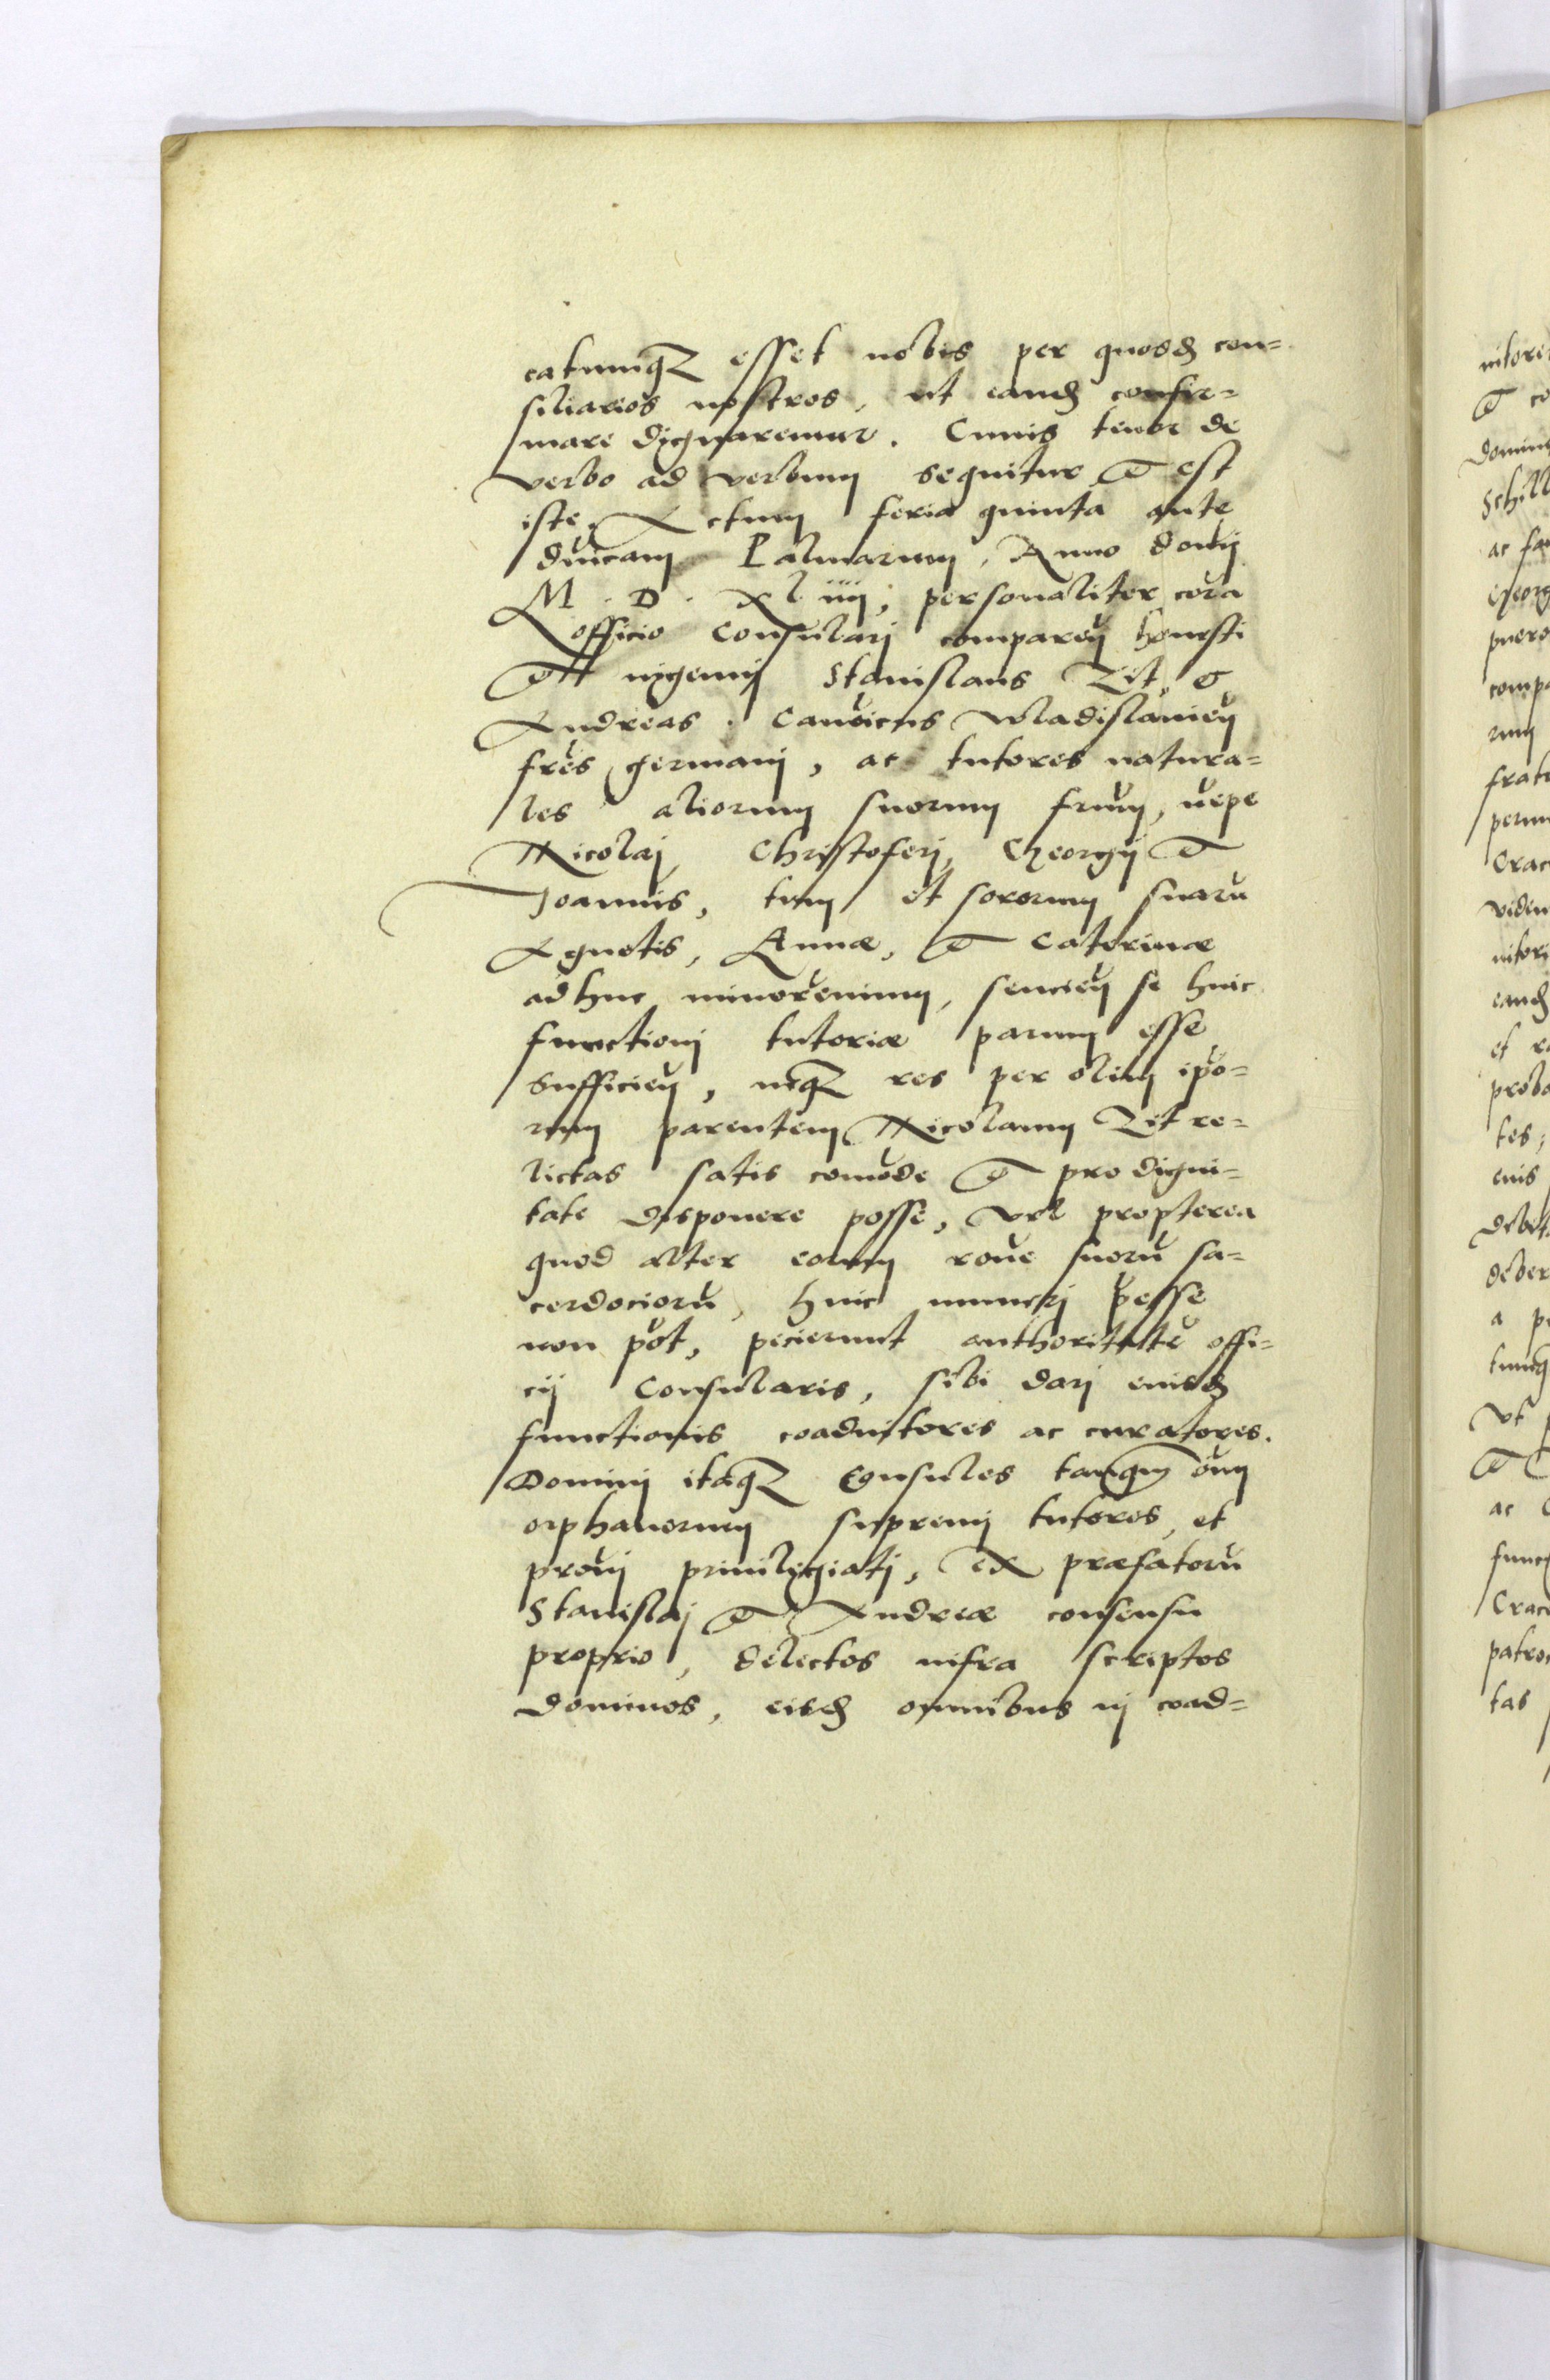 catumq3 esset nobis per quosd con=
siliarios nostros, ut eand confir=
mare dignaremur. Cuius tenor de
verbo ad verbum sequitur et est
iste. Actum feria quinta ante
dnicam Palmarum, Anno domij
M. D. xl iiij, personaliter cora
officio Consulari comparen honesti
et ingenuij Stanislaus Zit, et
Andreas. Canoicus Wladislauien
fres germani, ac tutores natura=
les aliorum suorum frum, uepe
Nicolai, Christoferi, Georgij et
Joannis, tum et sororum suaru
Agnetis, Annæ, et Caterinæ
adhuc minorennium, sencien se huic
functioni tutoriæ parum esse
sufficien, neq3 res per olim ipo=
rum parentem Nicolaum Zit re=
lictas satis comode et pro digni=
tate disponere posse, vel propterea
quod alter eorum rone suoru sa=
cerdocioru, huic muneri peesse
non pot, pecierunt authoritate offi=
cij Consularis, sibi dari eiusd
functionis coadiutores ac curatores.
Domini itaq3 Consules tanqm oim
orphanorum supremi tutores, et
proui priuilegiati, ex præfatoru
Stanislai et Andreæ consensu
proprio, delectos infra scriptos
dominos, eisd omnibus in coad=